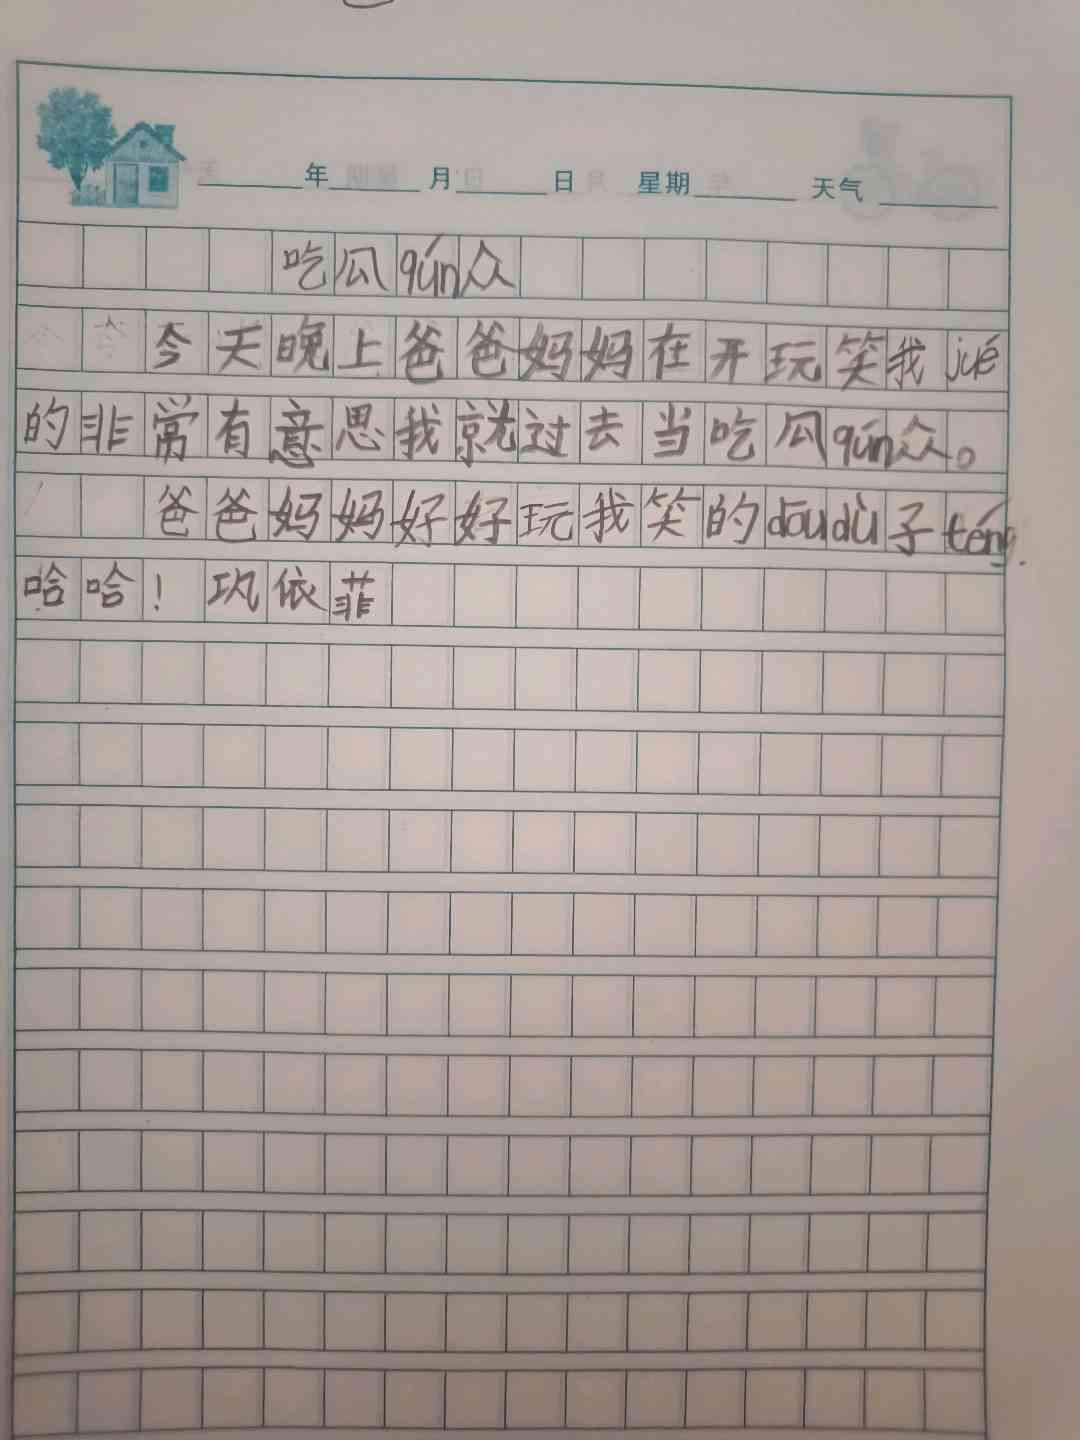 年 月 日 星期 天气
吃瓜qún众
今天晚上爸爸妈妈在开玩笑我jué
的非常有意思我就过去当吃瓜qún众。
爸爸妈妈好好玩我笑的dōudù子téng.
哈哈！巩依菲